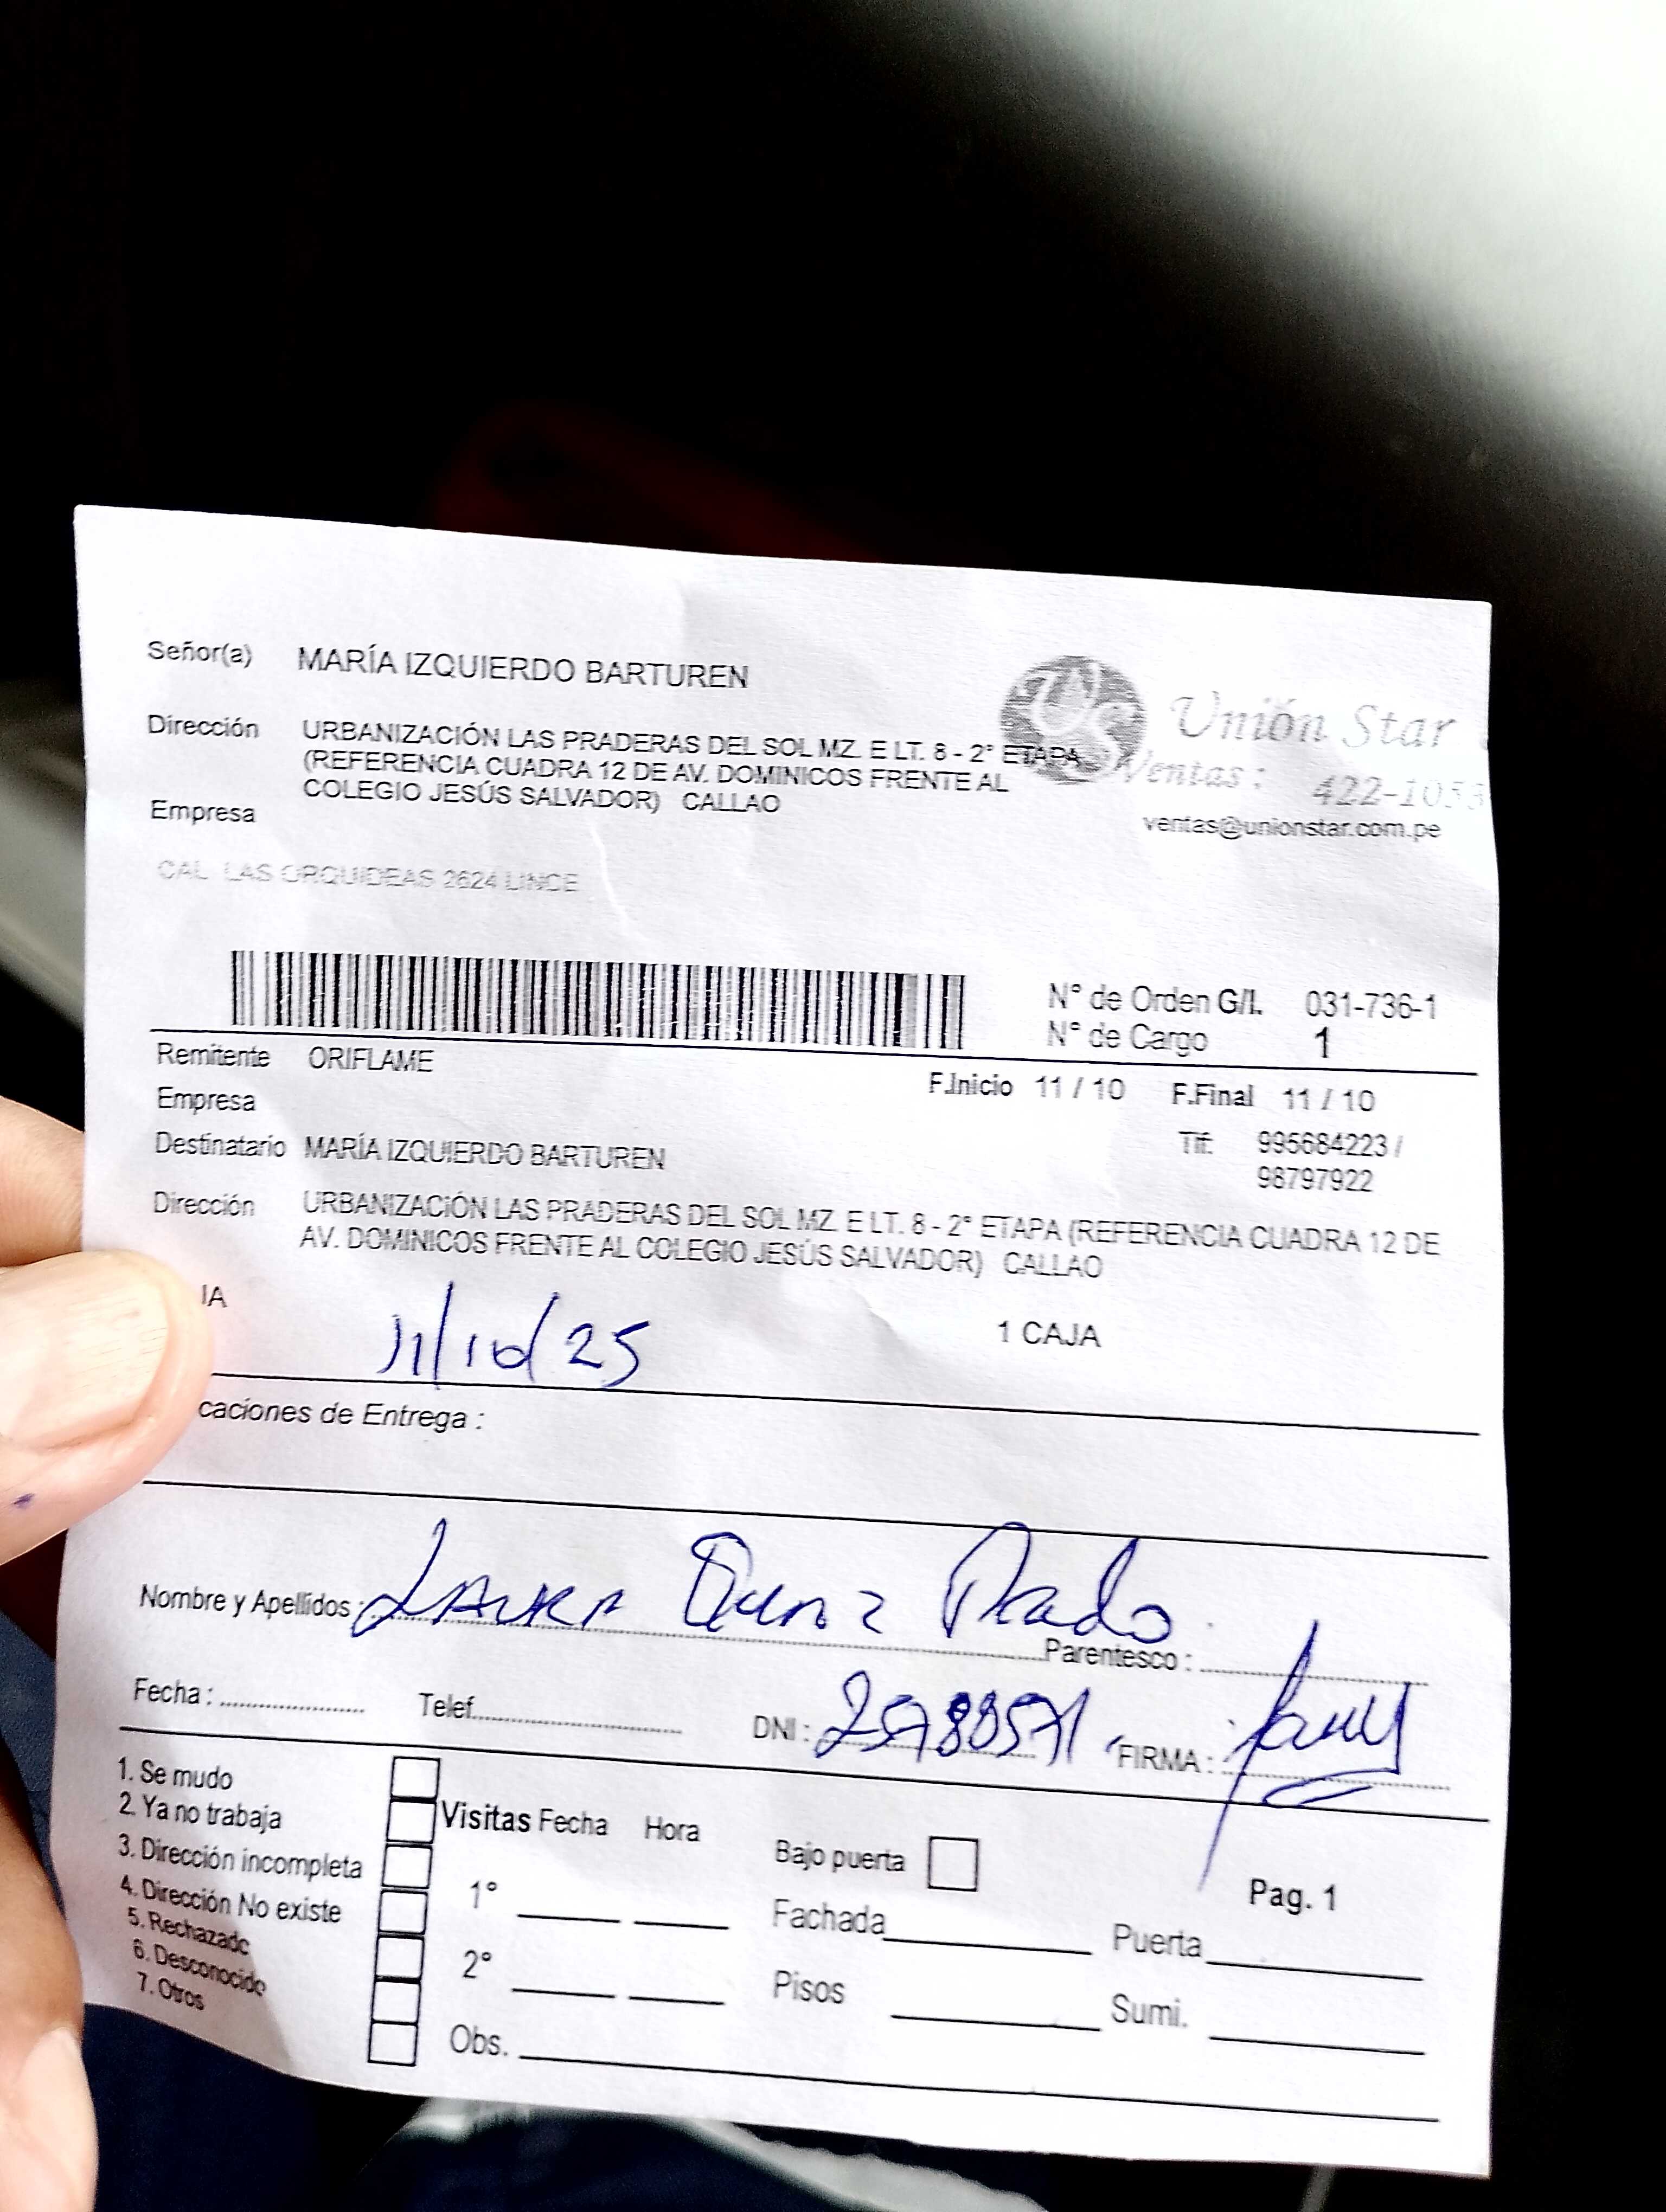 Señor(a) MARÍA IZQUIERDO BARTUREN
Unión Star
Dirección URBANIZACIÓN LAS PRADERAS DEL SOL MZ. E LT. 8 - 2° ETAPA
(REFERENCIA CUADRA 12 DE AV. DOMINICOS FRENTE AL
COLEGIO JESÚS SALVADOR) CALLAO
Ventas : 422-1053
ventas@unionstar.com.pe
Empresa
CAL LAS ORQUIDEAS 2624 LINCE
N° de Orden G/I. 031-736-1
N° de Cargo 1
Remitente ORIFLAME
F.Inicio 11 / 10 F.Final 11 / 10
Empresa
Destinatario MARÍA IZQUIERDO BARTUREN
Tlf: 995684223 /
98797922
Dirección URBANIZACIÓN LAS PRADERAS DEL SOL MZ. E LT. 8 - 2° ETAPA (REFERENCIA CUADRA 12 DE
AV. DOMINICOS FRENTE AL COLEGIO JESÚS SALVADOR) CALLAO
IA
11/10/25
1 CAJA
caciones de Entrega :
Nombre y Apellidos : LAURA Prado
Parentesco :
Fecha : Telef. DNI : 25788571 FIRMA :
1. Se mudo
2. Ya no trabaja
3. Dirección incompleta
4. Dirección No existe
5. Rechazado
6. Desconocido
7. Otros
Visitas Fecha Hora
1°
2°
Obs.
Bajo puerta
Pag. 1
Fachada Puerta
Pisos Sumi.